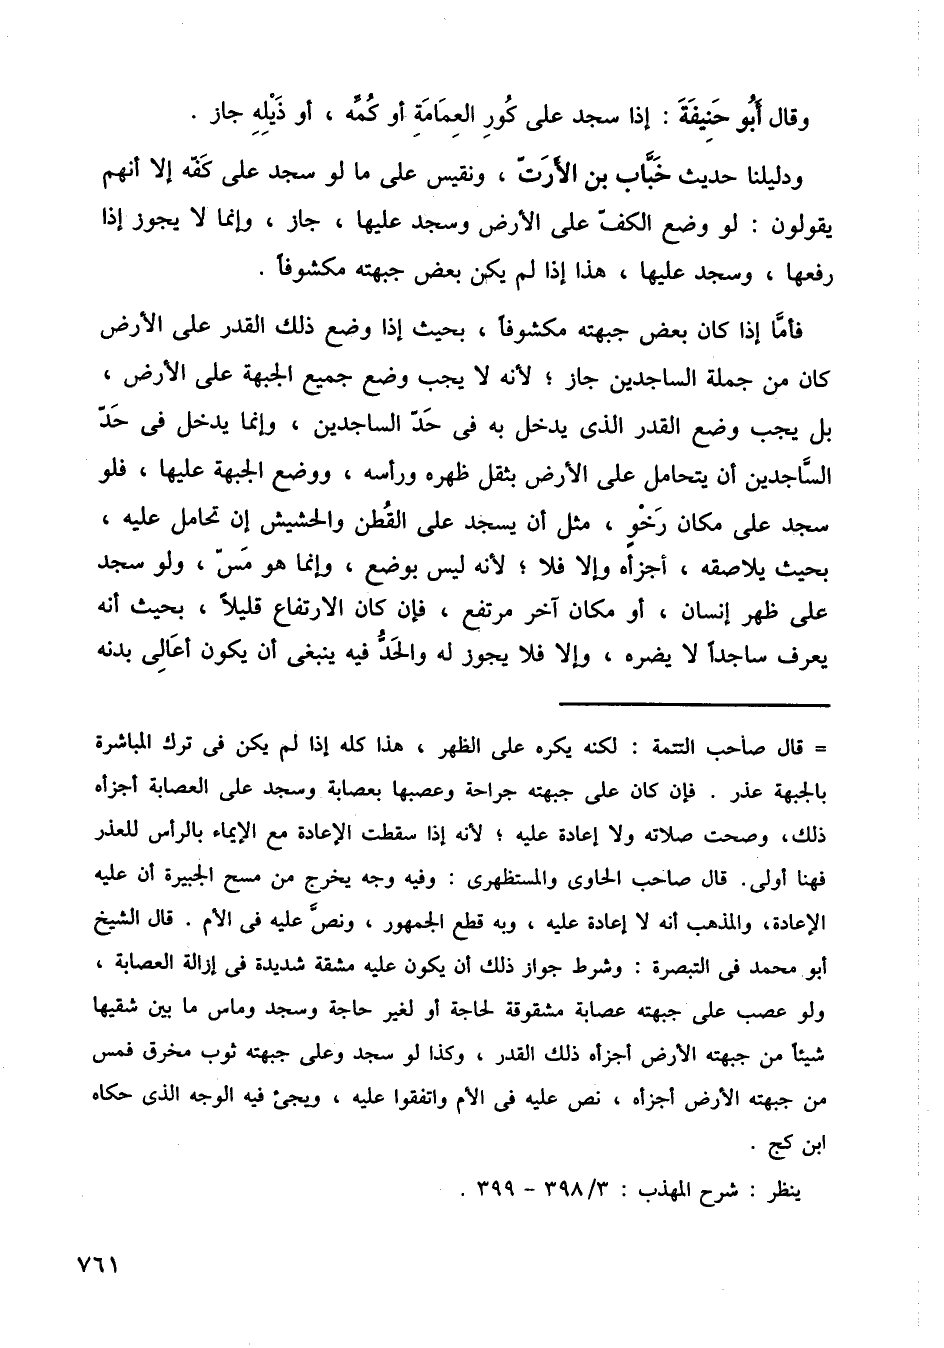 وقال أَبُو حَنِيفَةَ : إذا سجد على كُورِ العِمَامَةِ أو كُمَّه ، أو ذَيْلِهِ جاز .
ودليلنا حديث خَبَّاب بن الأَرَتّ ، ونقيس على ما لو سجد على كَفّه إلا أنهم
يقولون : لو وضع الكفّ على الأرض وسجد عليها ، جاز ، وإنما لا يجوز إذا
رفعها ، وسجد عليها ، هذا إذا لم يكن بعض جبهته مكشوفاً .
فأمَّا إذا كان بعض جبهته مكشوفاً ، بحيث إذا وضع ذلك القدر على الأرض
كان من جملة الساجدين جاز ؛ لأنه لا يجب وضع جميع الجبهة على الأرض ،
بل يجب وضع القدر الذى يدخل به فى حَدّ الساجدين ، وإنما يدخل فى حَدّ
السَّاجدين أن يتحامل على الأرض بثقل ظهره ورأسه ، ووضع الجبهة عليها ، فلو
سجد على مكان رَخْوٍ ، مثل أن يسجد على القُطن والحشيش إن تحامل عليه ،
بحيث يلاصقه ، أجزأه وإلا فلا ؛ لأنه ليس بوضع ، وإنما هو مَسّ ، ولو سجد
على ظهر إنسان ، أو مكان آخر مرتفع ، فإن كان الارتفاع قليلاً ، بحيث أنه
يعرف ساجداً لا يضره ، وإلا فلا يجوز له والحَدُّ فيه ينبغى أن يكون أعَالِى بدنه
= قال صاحب التتمة : لكنه يكره على الظهر ، هذا كله إذا لم يكن فى ترك المباشرة
بالجبهة عذر . فإن كان على جبهته جراحة وعصبها بعصابة وسجد على العصابة أجزأه
ذلك، وصحت صلاته ولا إعادة عليه ؛ لأنه إذا سقطت الإعادة مع الإيماء بالرأس للعذر
فهنا أولى. قال صاحب الحاوى والمستظهرى : وفيه وجه يخرج من مسح الجبيرة أن عليه
الإعادة، والمذهب أنه لا إعادة عليه ، وبه قطع الجمهور ، ونصَّ عليه فى الأم . قال الشيخ
أبو محمد فى التبصرة : وشرط جواز ذلك أن يكون عليه مشقة شديدة فى إزالة العصابة ،
ولو عصب على جبهته عصابة مشقوقة لحاجة أو لغير حاجة وسجد وماس ما بين شقيها
شيئاً من جبهته الأرض أجزأه ذلك القدر ، وكذا لو سجد وعلى جبهته ثوب مخرق فمس
من جبهته الأرض أجزأه ، نص عليه فى الأم واتفقوا عليه ، ويجئ فيه الوجه الذى حكاه
ابن كج .
ينظر : شرح المهذب : ٣٩٨/٣ - ٣٩٩ .
٧٦١